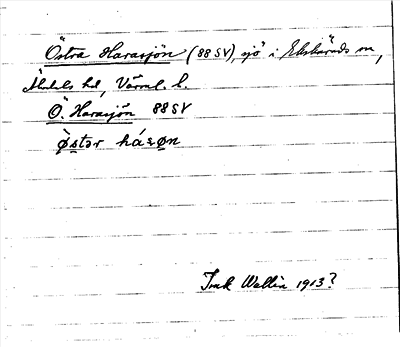 Östra Harasjön (88 SV), sjö i Ekshärads sn,
Älvdals hd, Värml. l.
Ö. Harasjön 88 SV
östər há
Wallin 1913?